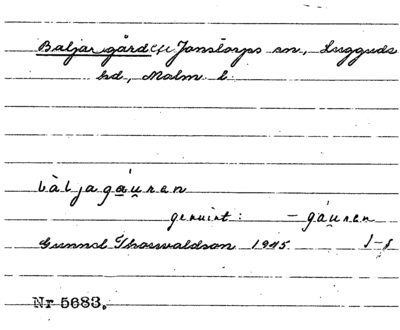 Baljargården Jonstorps sn, Luggude
hd, Malm. l.
bàljagáu̯ren
genuint: – gáu̯ren
Gunnel Thorwaldson 1945
Nr 5683.